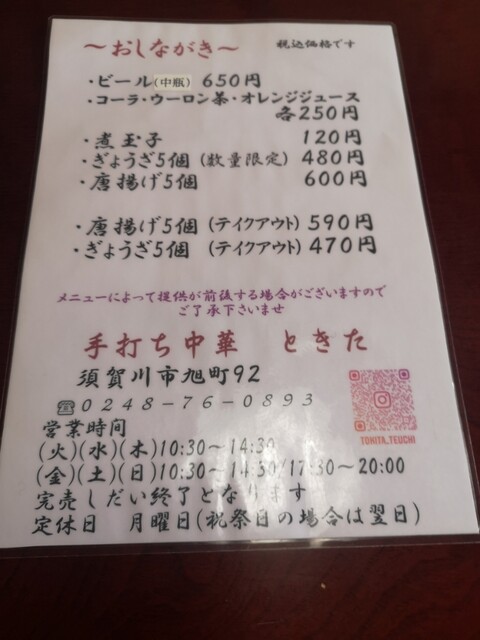 ～おしながき～ 税込価格です
・ビール(中瓶) 650円
・コーラ・ウーロン茶・オレンジジュース
各250円
・煮玉子 120円
・ぎょうざ5個 (数量限定) 480円
・唐揚げ5個 600円
・唐揚げ5個 (テイクアウト) 590円
・ぎょうざ5個 (テイクアウト) 470円
メニューによって提供が前後する場合がございますので
ご了承下さいませ
手打ち中華 ときた
須賀川市旭町92
☎0248-76-0893
TOKITA_TEUCHI
営業時間
(火)(水)(木)10:30～14:30
(金)(土)(日)10:30～14:30/17:30～20:00
完売しだい終了となります
定休日 月曜日(祝祭日の場合は翌日)